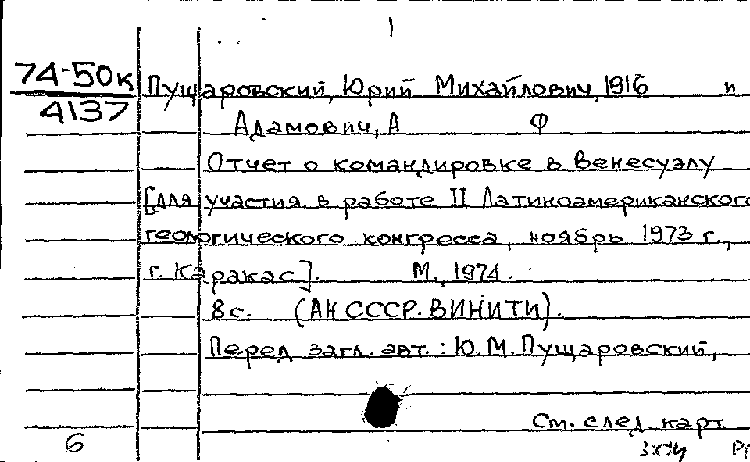 1
74-50к
4137
Пущаровский, Юрий Михайлович, 1916 и
Адамович, А Ф
Отчет о командировке в Венесуэлу
[для участия в работе II Латиноамериканского
геологического конгресса, ноябрь 1973 г.,
г. Каракас]. М., 1974.
8 с. (АН СССР. ВИНИТИ).
Перед загл. авт.: Ю.М. Пущаровский,
См. след карт
6